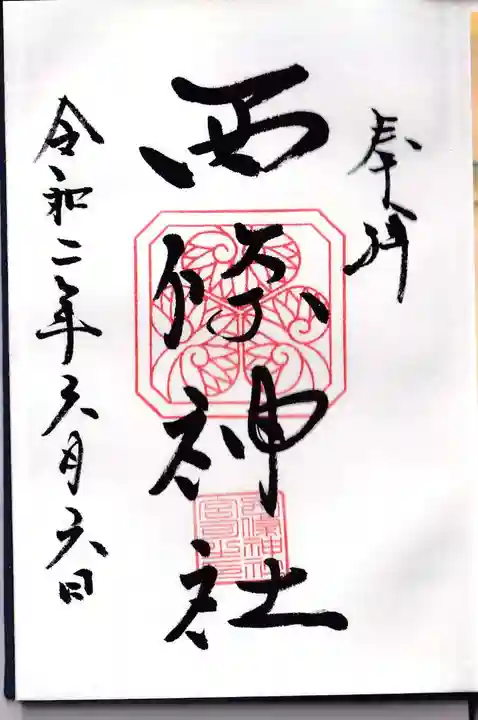 奉拝
西條神社
令和二年六月六日
西條神社
宮司之印